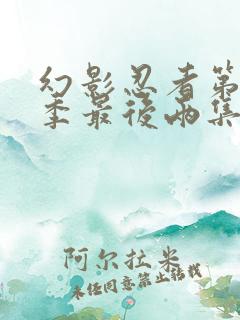 幻影忍者第
季最後兩集
阿尔拉米
未经同意禁止转载